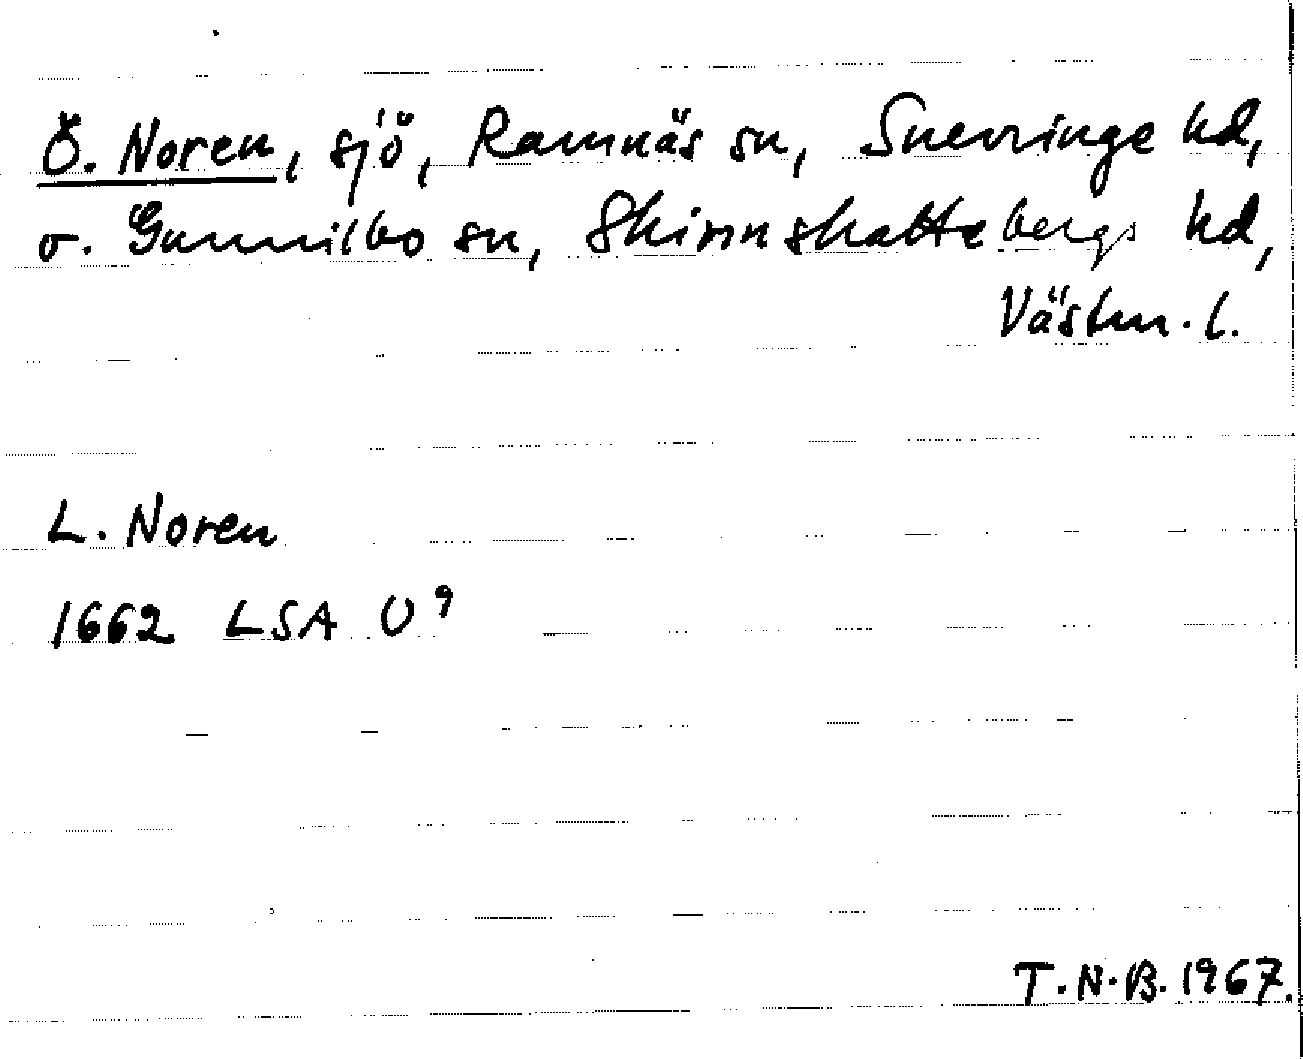 Ö. Noren, sjö, Ramnäs sn, Snevringe hd,
o. Gunnilbo sn, Skinnskattebergs hd,
Västm. l.
L. Noren
1662 LSA U⁹
T.N.B. 1967.